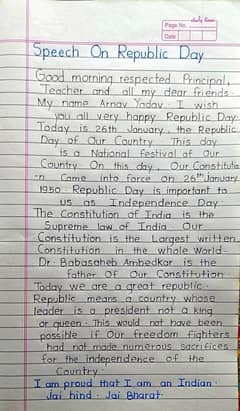 study live
Page No.
Date
Speech On Republic Day
Good morning respected Principal,
Teacher and all my dear friends.
My name Arnav Yadav. I wish
you all very happy Republic Day.
Today is 26th January, the Republic
Day of Our Country This day
is a National festival of Our
Country On this day, Our Constitutio
n Came into force on 26th January
1950. Republic Day is important to
us as Independence Day
The Constitution of India is the
Supreme law of India Our
Constitution is the Largest written
Constitution in the whole World.
Dr. Babasaheb Ambedkar is the
father Of Our Constitution.
Today we are a great republic.
Republic means a country whose
leader is a president not a king
or queen. This would not have been
possible if Our freedom fighters
had not made numerous sacrifices
for the independence of the
Country.
I am proud that I am an Indian.
Jai hind. Jai Bharat.